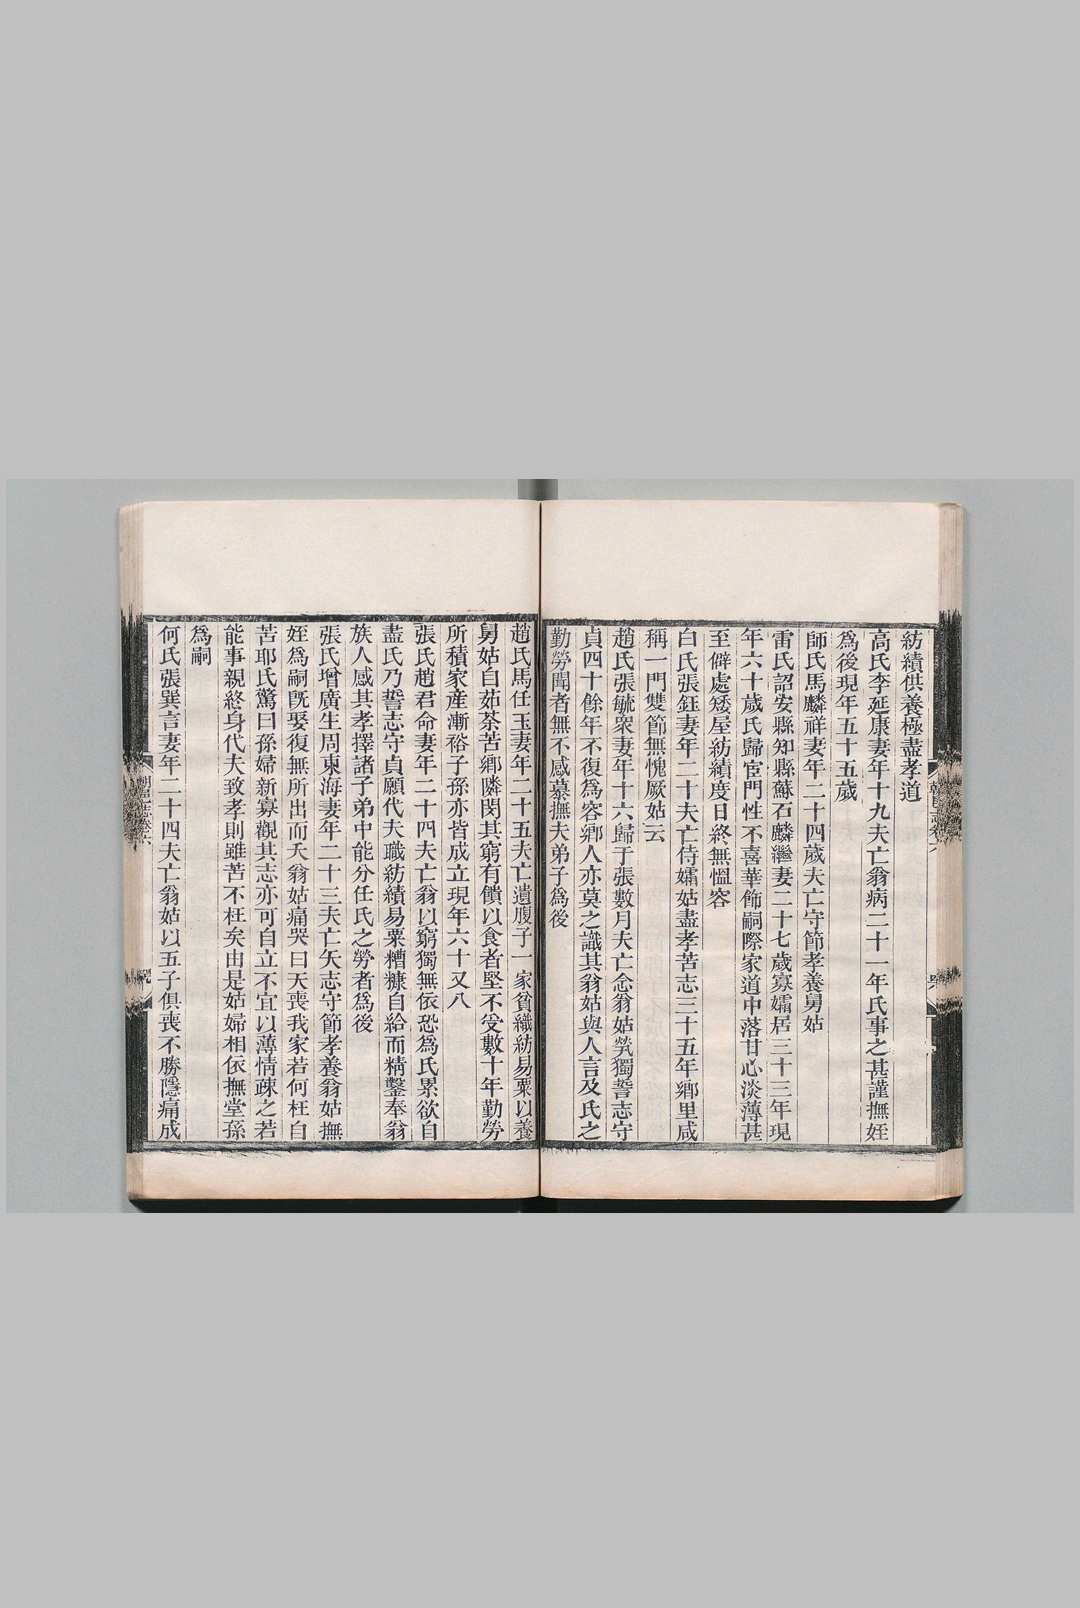 紡績供養極盡孝道
高氏李延康妻年十九夫亡翁病二十一年氏事之甚謹撫姪
為後現年五十五歲
師氏馬麟祥妻年二十四歲夫亡守節孝養舅姑
雷氏詔安縣知縣蘇石麟繼妻二十七歲寡孀居三十三年現
年六十歲氏歸宦門性不喜華飾嗣際家道中落甘心淡薄甚
至僻處矮屋紡績度日終無慍容
白氏張鈺妻年二十夫亡侍孀姑盡孝苦志三十五年鄉里咸
稱一門雙節無愧厥姑云
趙氏張毓衆妻年十六歸于張數月夫亡念翁姑煢獨誓志守
貞四十餘年不復為容鄉人亦莫之識其翁姑與人言及氏之
勤勞聞者無不感慕撫夫弟子為後
趙氏馬任玉妻年二十五夫亡遺腹子一家貧織紡易粟以養
舅姑自茹荼苦鄉隣閔其窮有饋以食者堅不受數十年勤勞
所積家産漸裕子孫亦皆成立現年六十又八
張氏趙君命妻年二十四夫亡翁以窮獨無依恐為氏累欲自
盡氏乃誓志守貞願代夫職紡績易粟糟糠自給而精鑿奉翁
族人感其孝擇諸子弟中能分任氏之勞者為後
張氏增廣生周東海妻年二十三夫亡矢志守節孝養翁姑撫
姪為嗣旣娶復無所出而夭翁姑痛哭曰天喪我家若何枉自
苦耶氏驚曰孫婦新寡觀其志亦可自立不宜以薄情疎之若
能事親終身代夫致孝則雖苦不枉矣由是姑婦相依撫堂孫
為嗣
何氏張巽言妻年二十四夫亡翁姑以五子俱喪不勝隱痛成